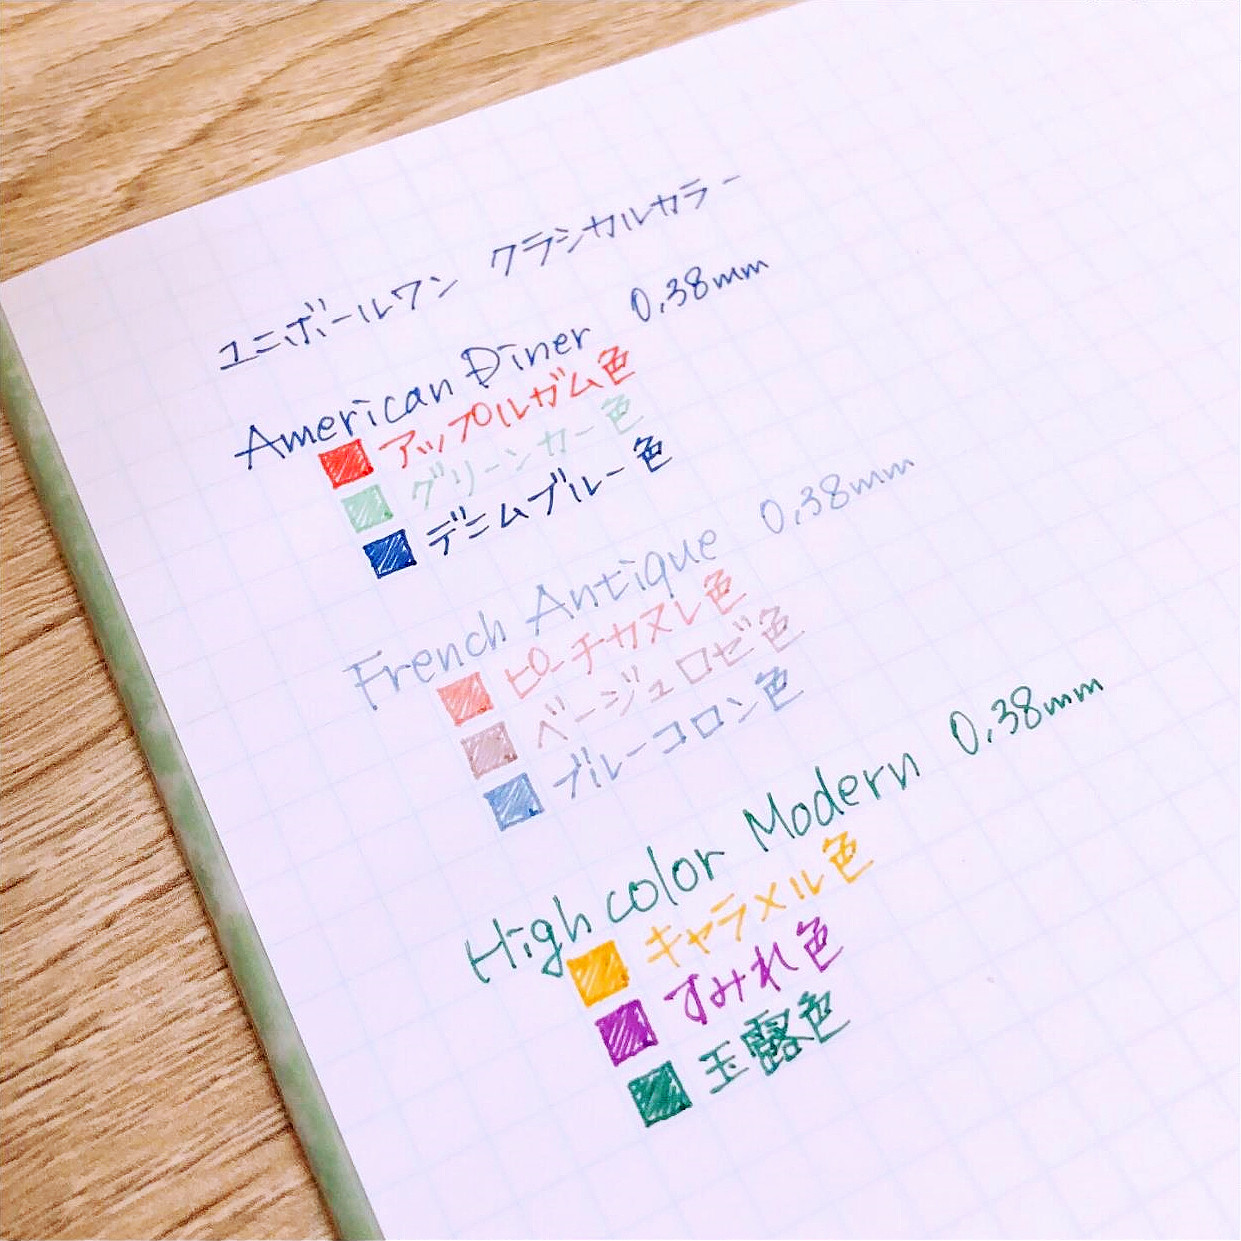 ユニボールワン クラシカルカラー
American Diner 0.38mm
アップルガム色
グリーンカー色
デニムブルー色
French Antique 0.38mm
ピーチカヌレ色
ベージュロゼ色
ブルーコロン色
High color Modern 0.38mm
キャラメル色
すみれ色
玉露色